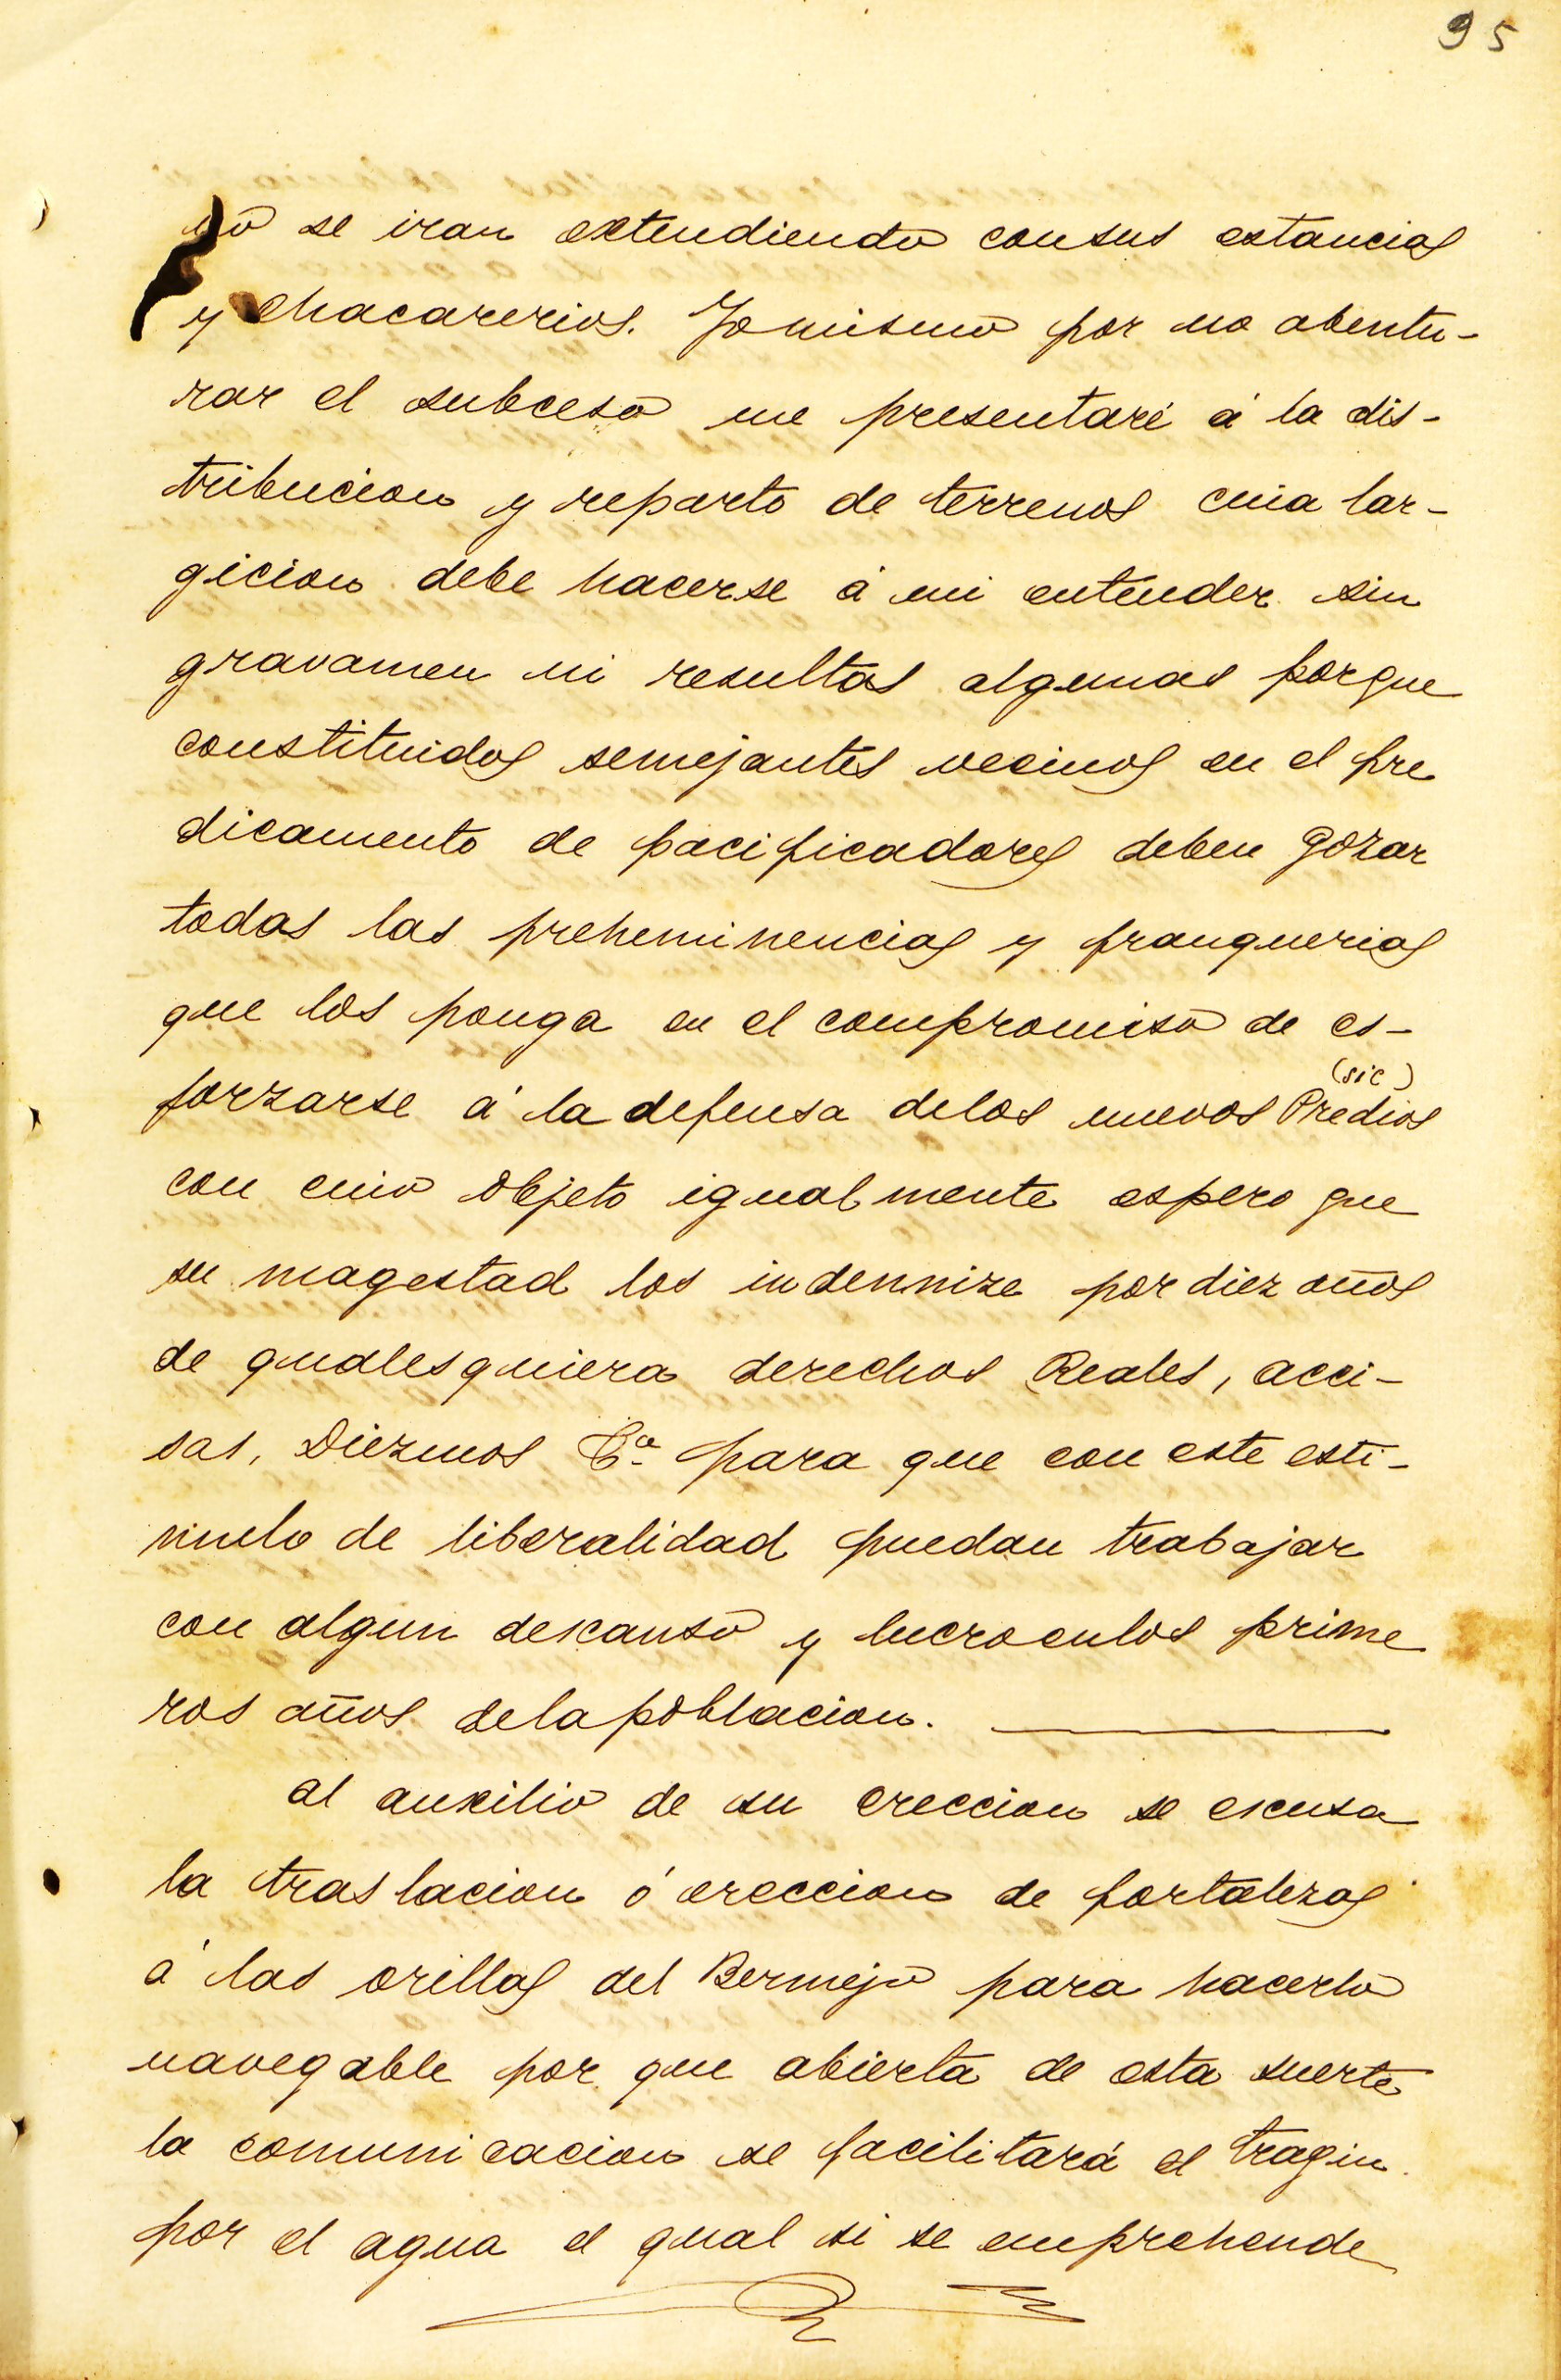 95
no se iran extendiendo consus estancias
y chacarerios. Yo mismo por no abentu-
rar el subceso me presentaré á la dis-
tribucion y reparto de terrenos cuia lar-
gicion debe hacerse á mi entender sin
gravamen ni resultas algunas porque
constituidos semejantes vecinos en el pre
dicamento de pacificadores deben gozar
todas las preheminencias y franquerias
que los ponga en el compromiso de es-
(sic)
forzarse á la defensa delos nuevos Predios
con cuio objeto igualmente espero que
su magestad los indennize por diez años
de qualesquiera derechos Reales, acci-
sas, Diezmos &a para que con este esti-
mulo de liberalidad puedan trabajar
con algun descanso y lucro enlos prime
ros años dela poblacion.
al auxilio de su ereccion se escusa
la traslacion ó ereccion de fortalezas
á las orillas del Bermejo para hacerlo
navegable por que abierta de esta suerte
la comunicacion se facilitará el tragin
por el agua el qual si se emprehende